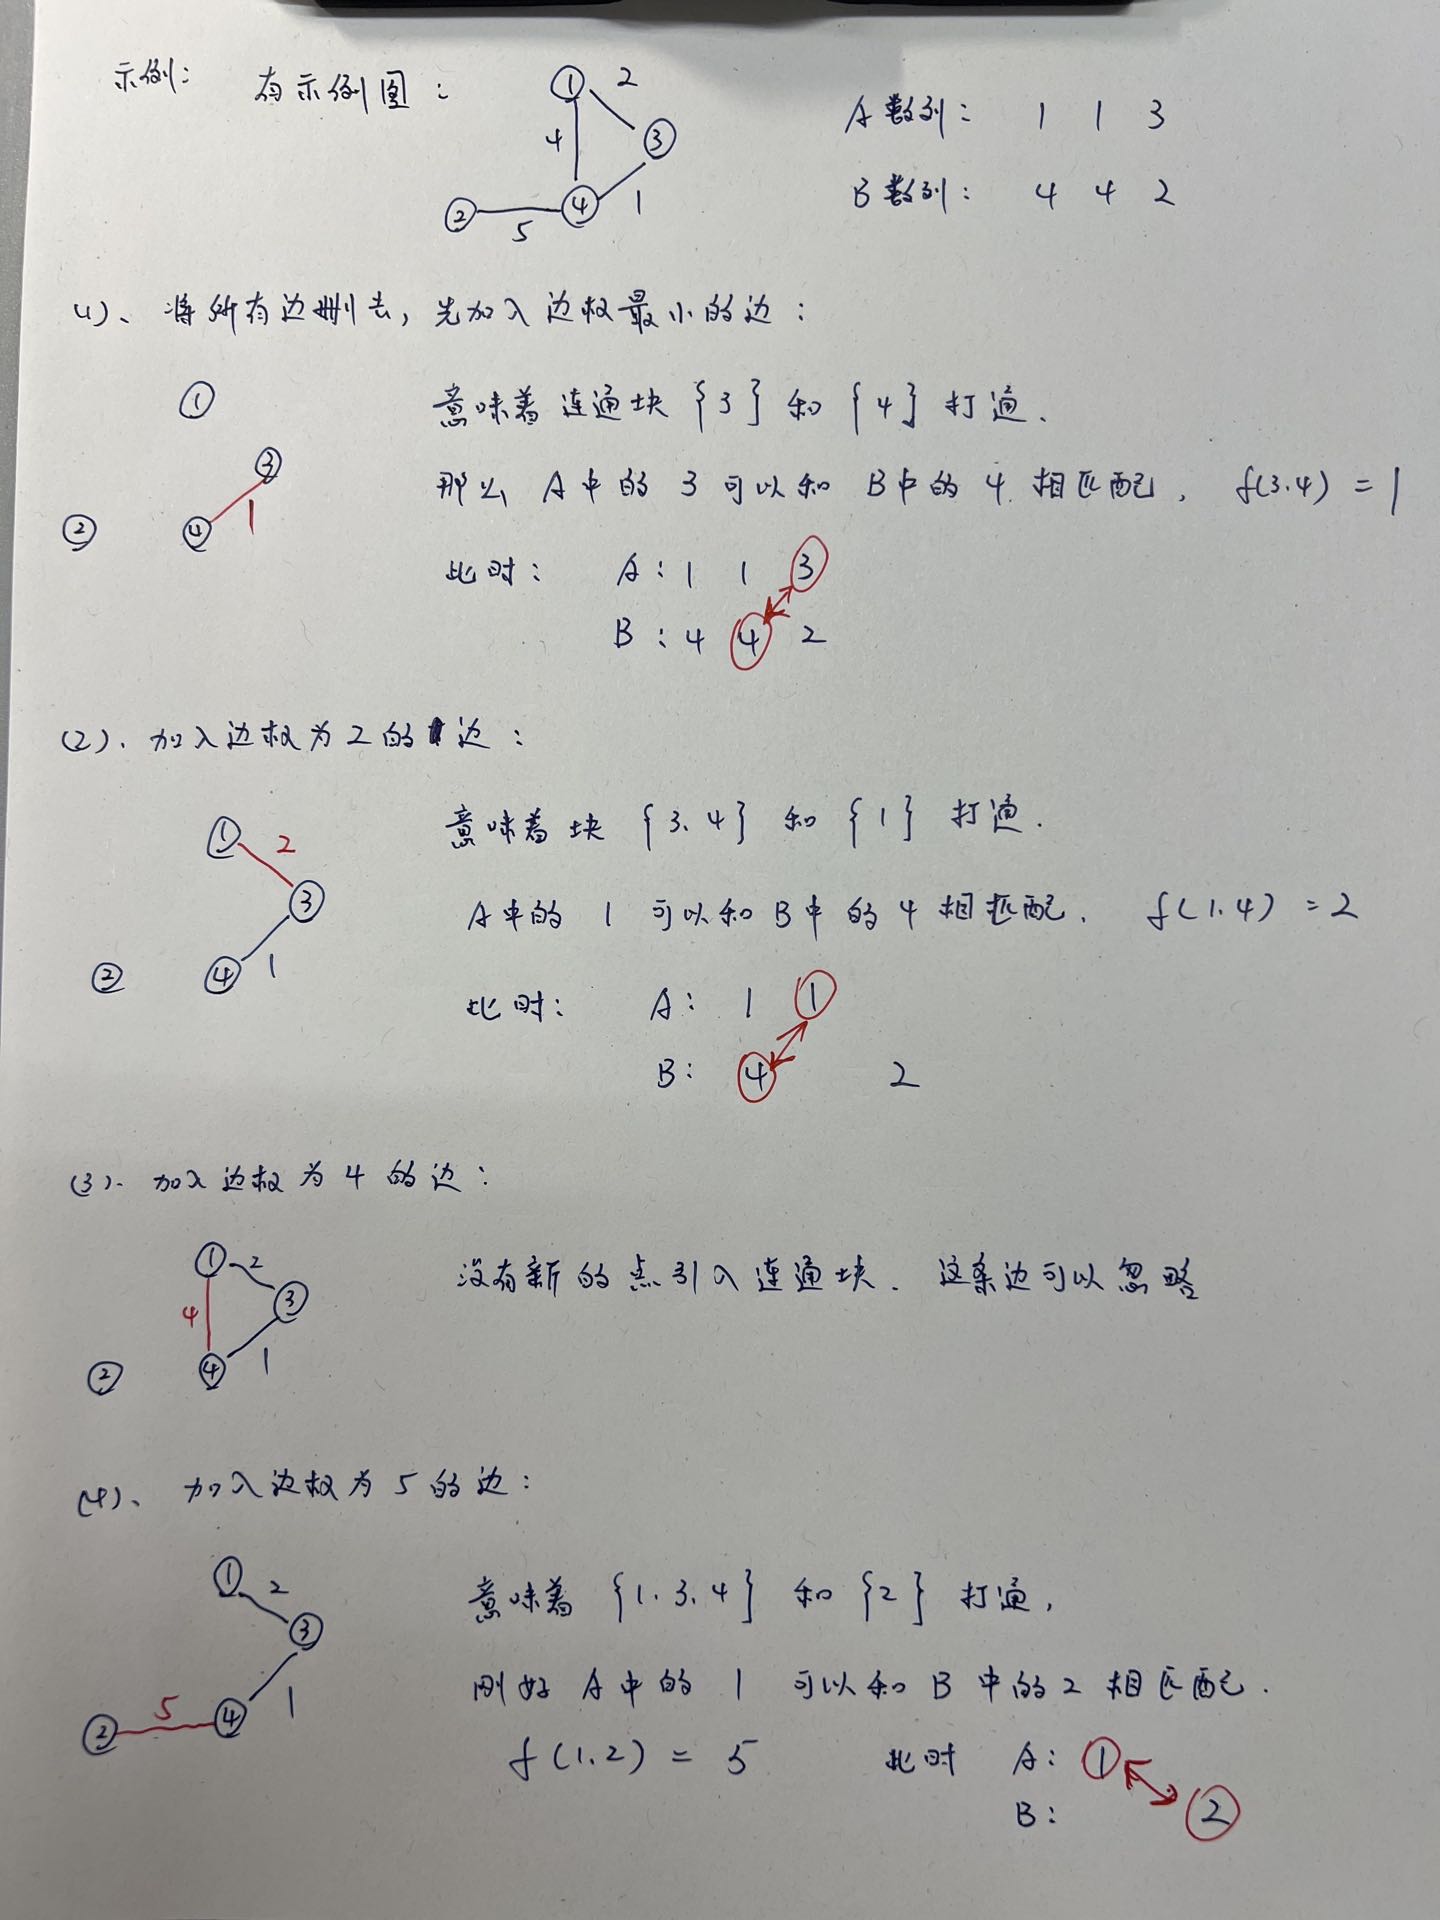 示例： 有示例图：
① 2
4 ③
② 5 ④ 1
A数列： 1 1 3
B数列： 4 4 2
(1)、将所有边删去，先加入边权最小的边：
①
③
② ④ 1
意味着连通块{3}和{4}打通.
那么A中的3可以和B中的4相匹配，f(3.4) = 1
此时： A：1 1 3
B：4 4 2
(2)、加入边权为2的边：
① 2
③
② ④ 1
意味着块{3.4}和{1}打通.
A中的1可以和B中的4相匹配. f(1.4) = 2
此时： A： 1 1
B： 4 2
(3)、加入边权为4的边：
① 2
4 ③
② ④ 1
没有新的点引入连通块. 这条边可以忽略
(4)、加入边权为5的边：
① 2
③
② 5 ④ 1
意味着{1.3.4}和{2}打通，
刚好A中的1可以和B中的2相匹配.
f(1.2) = 5 此时 A： 1
B： 2